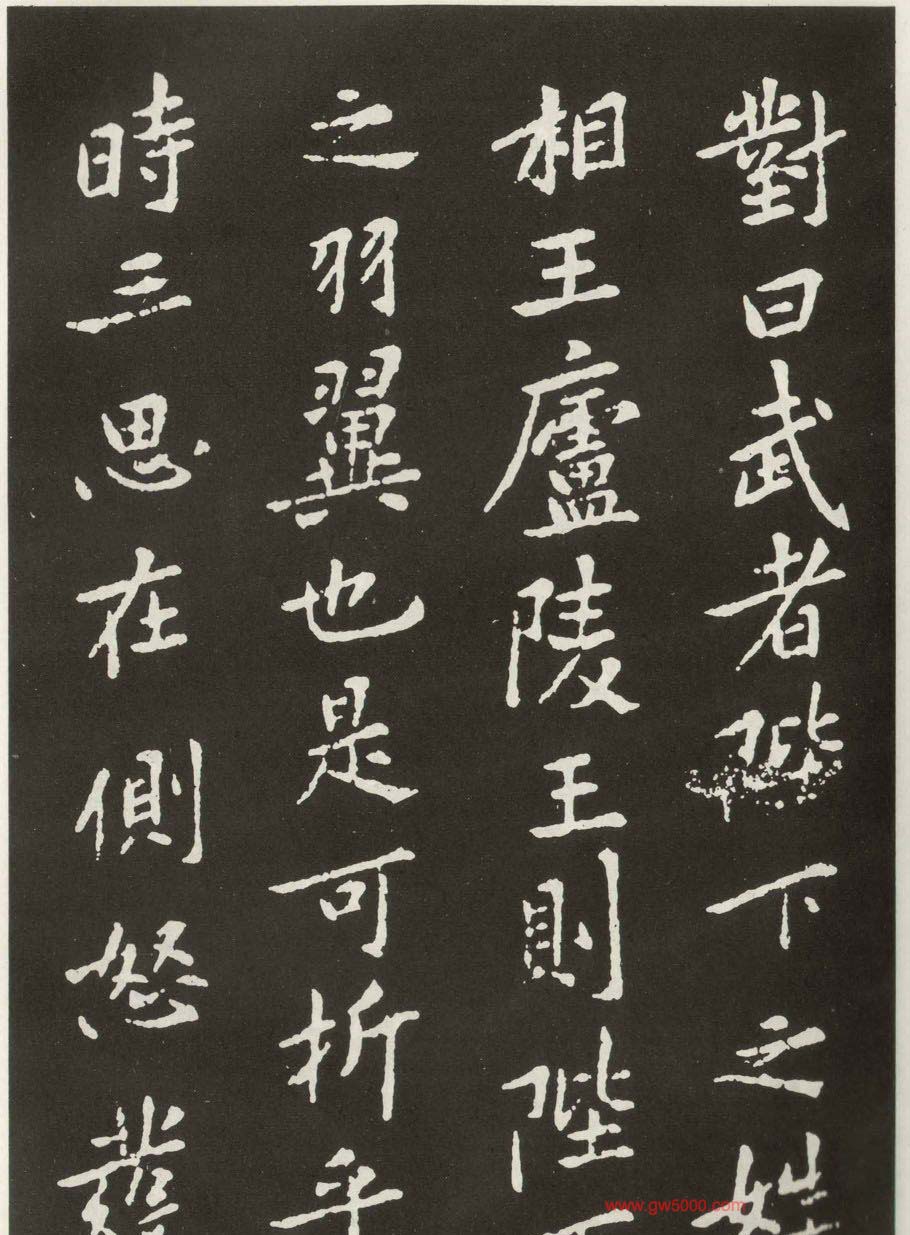 對曰武者陛下之姓
相王廬陵王則陛下
之羽翼也是可折乎
時三思在側怒發
www.gw5000.com